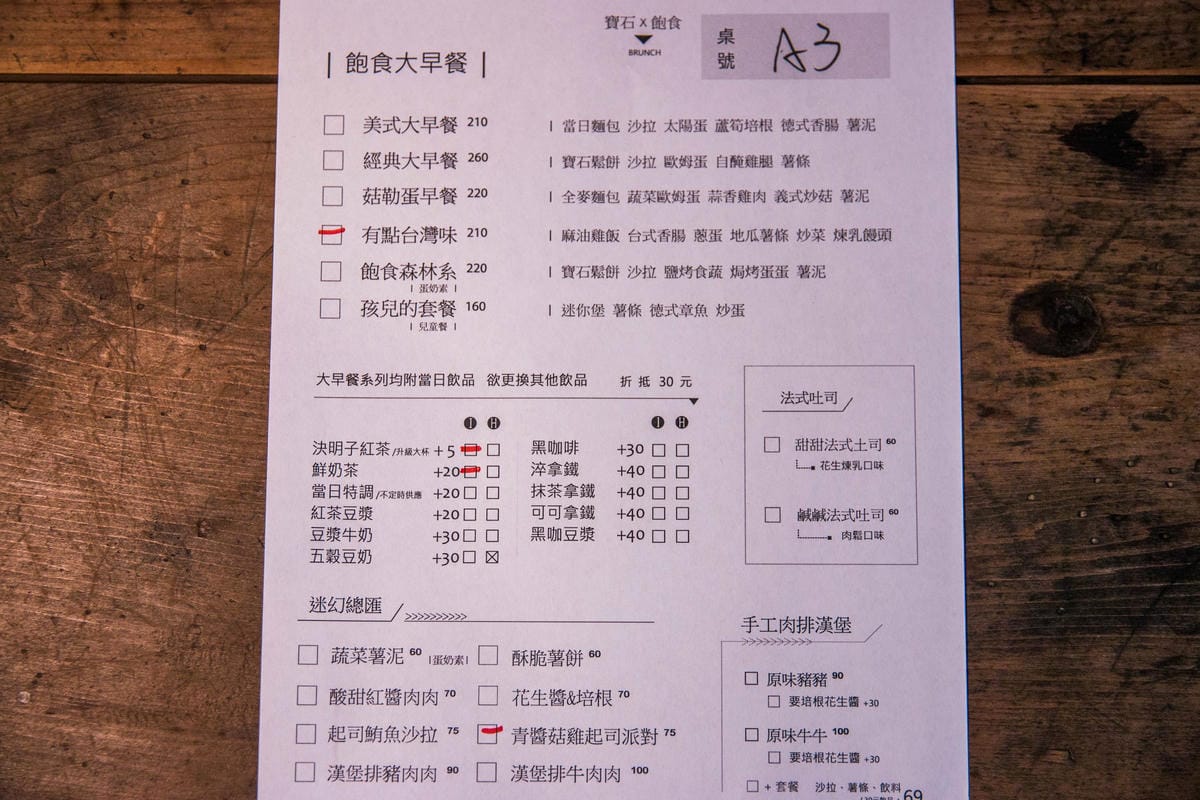 寶石 x 飽食
BRUNCH
桌號 A3
| 飽食大早餐 |
美式大早餐 210 | 當日麵包 沙拉 太陽蛋 蘆筍培根 德式香腸 薯泥
經典大早餐 260 | 寶石鬆餅 沙拉 歐姆蛋 自醃雞腿 薯條
菇勒蛋早餐 220 | 全麥麵包 蔬菜歐姆蛋 蒜香雞肉 義式炒菇 薯泥
有點台灣味 210 | 麻油雞飯 台式香腸 蔥蛋 地瓜薯條 炒菜 煉乳饅頭
飽食森林系 220 | 寶石鬆餅 沙拉 鹽烤食蔬 焗烤蛋蛋 薯泥
| 蛋奶素 |
孩兒的套餐 160 | 迷你堡 薯條 德式章魚 炒蛋
| 兒童餐 |
大早餐系列均附當日飲品 欲更換其他飲品 折抵 30 元
I H I H
決明子紅茶 /升級大杯 +5
鮮奶茶 +20
當日特調 /不定時供應 +20
紅茶豆漿 +20
豆漿牛奶 +30
五穀豆奶 +30
黑咖啡 +30
淬拿鐵 +40
抹茶拿鐵 +40
可可拿鐵 +40
黑咖豆漿 +40
法式吐司
甜甜法式土司 60
花生煉乳口味
鹹鹹法式吐司 60
肉鬆口味
迷幻總匯
蔬菜薯泥 60 |蛋奶素|
酥脆薯餅 60
酸甜紅醬肉肉 70
花生醬&培根 70
起司鮪魚沙拉 75
青醬菇雞起司派對 75
漢堡排豬肉肉 90
漢堡排牛肉肉 100
手工肉排漢堡
原味豬豬 90
要培根花生醬 +30
原味牛牛 100
要培根花生醬 +30
+ 套餐 沙拉、薯條、飲料 69